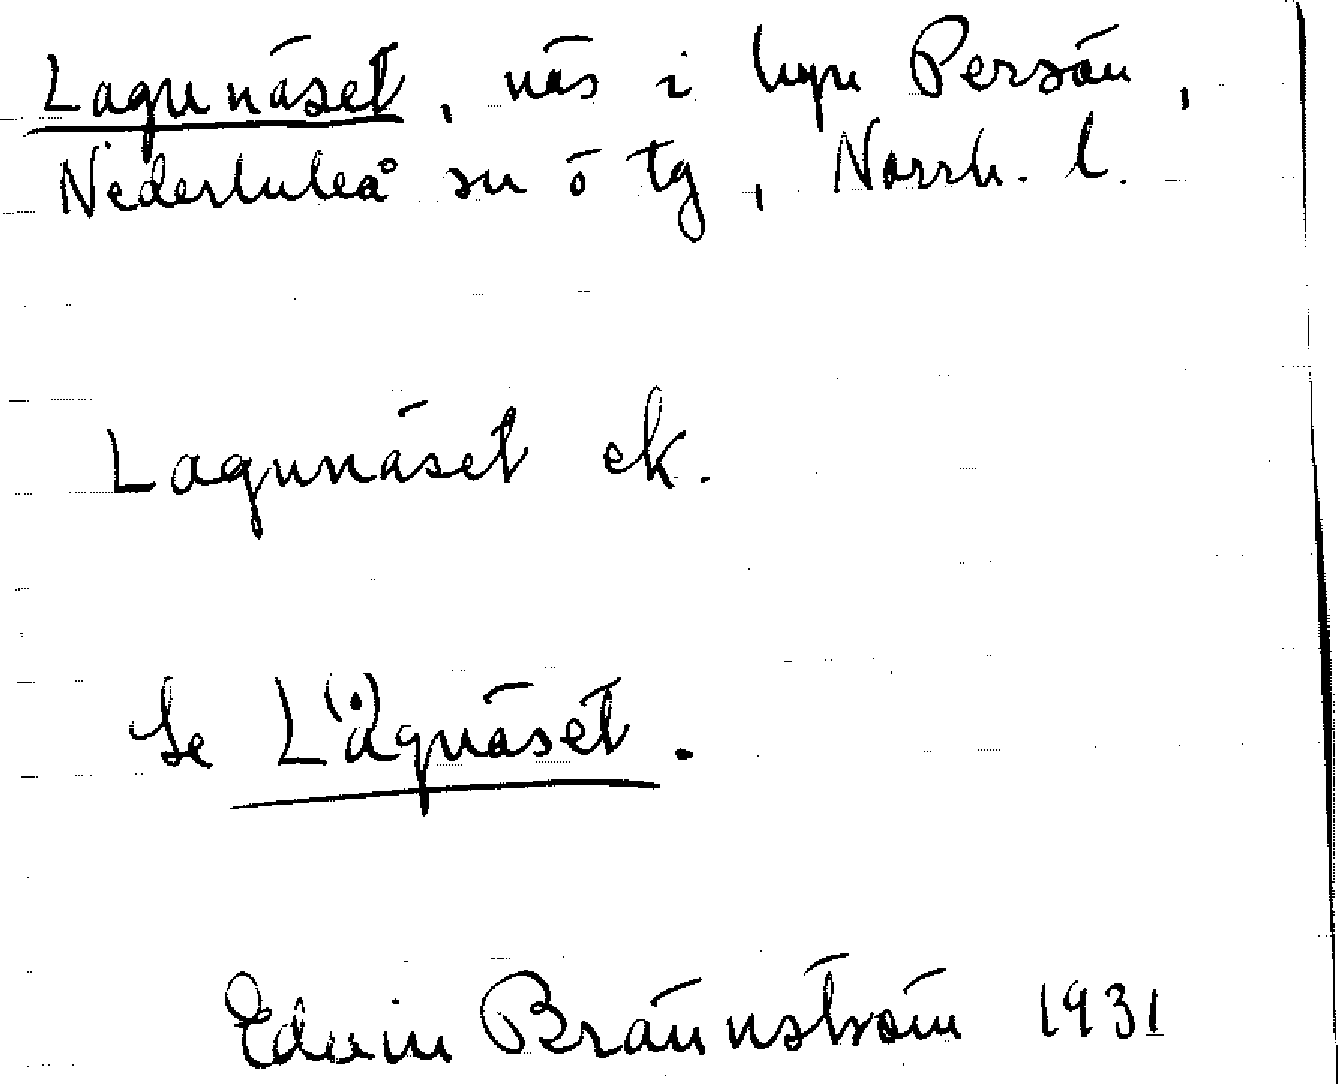 Lagunäset, näs i byn Persön,
Nederluleå sn o tg, Norrb. l.
Lagunäset ek.
Se L(°)agnäset.
Edvin Brännström 1931